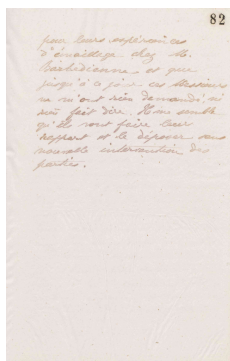 82
pour leurs expériences
d'émaillage chez M.
Barbédienne et que
jusqu'à ce jour ces Messieurs
ne m'ont rien demandé, ni
rien fait dire. Il me semble
qu'ils vont faire leur
rapport et le déposer sans
nouvelle intervention des
parties.